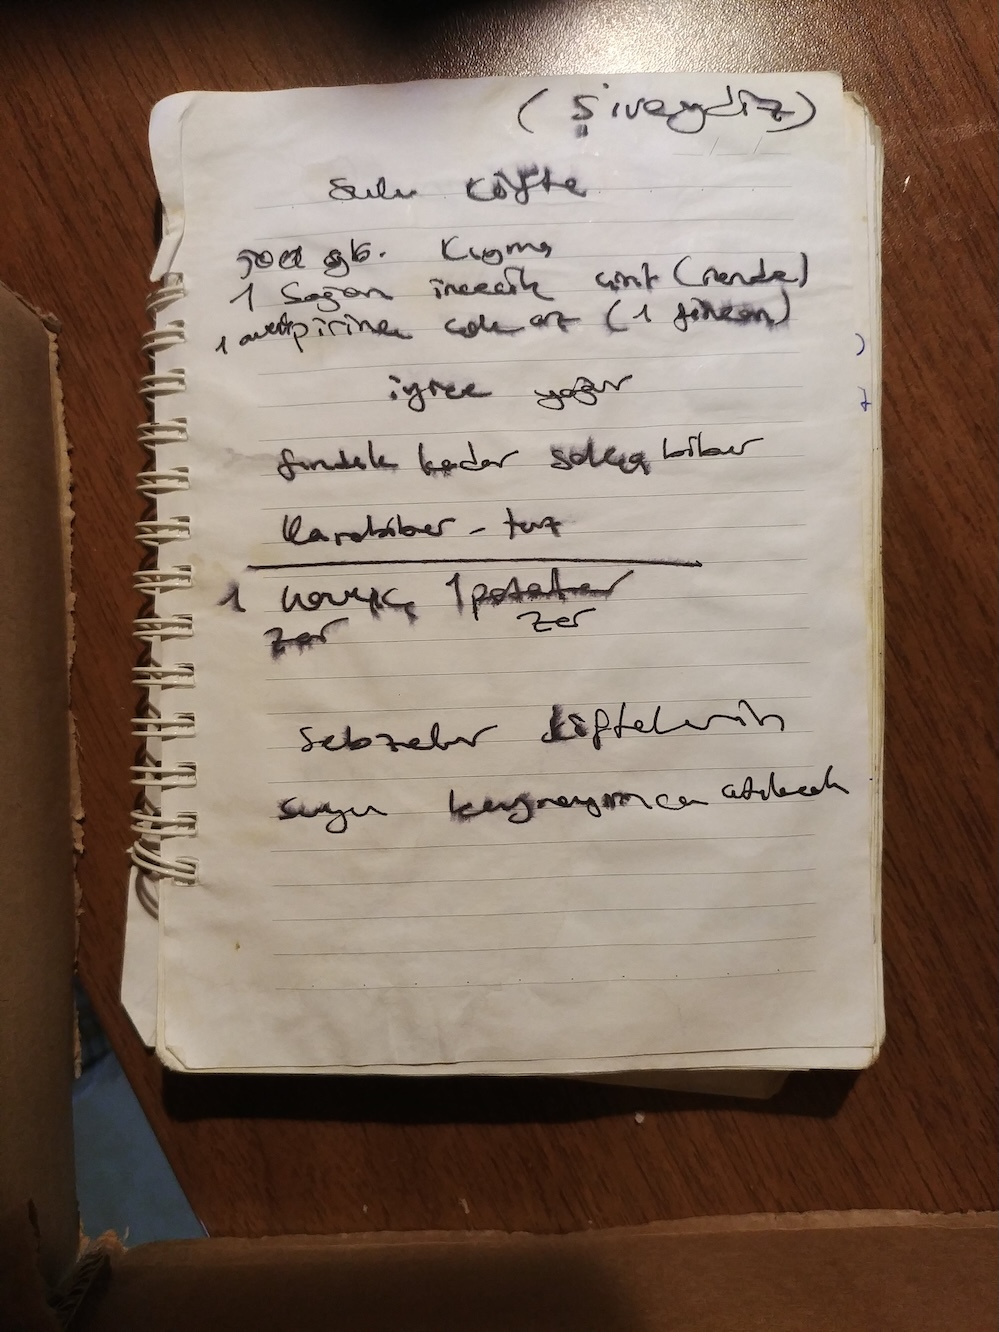 (Şiveydiz)
Sulu Köfte
gr. Kıyma
1 Soğan incecik çint (rende)
1 avuç pirinç çok az (1 fincan)
iyice yoğur
fındık kadar salça biber
Karabiber - tuz
1 havuç, 1 patates
zar zar
Sebzeler köftelerin
suyu kaynayınca atılacak